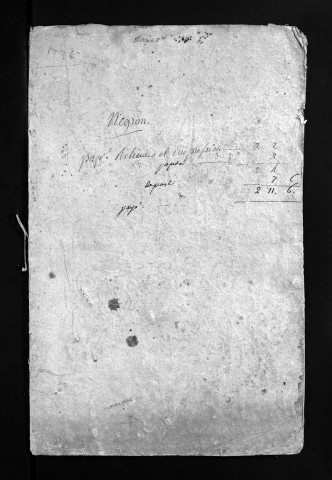 1792
Négron
pap.r Relieure et impression 2 2
papier 2
2 4
Depost 7 6
2 11. 6.
payé